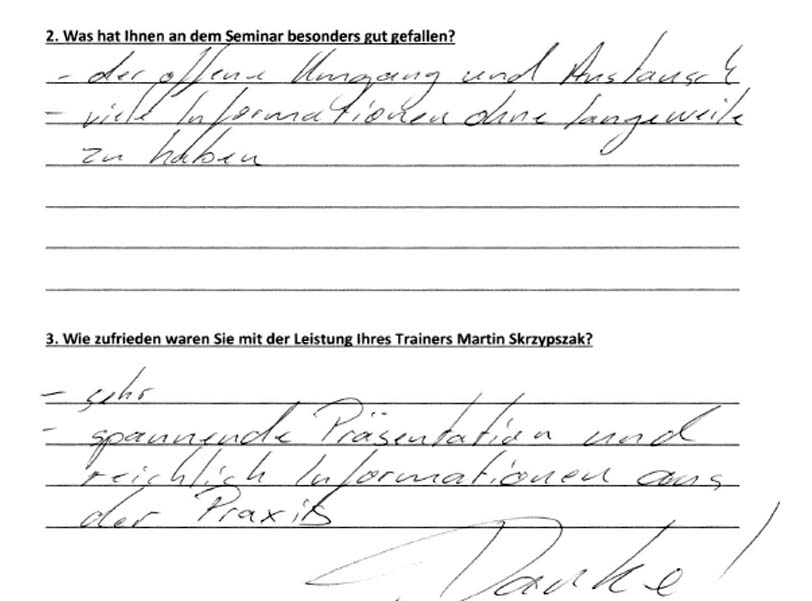 2. Was hat Ihnen an dem Seminar besonders gut gefallen?
- der offene Umgang und Austausch
- viele Informationen ohne langeweile
zu haben
3. Wie zufrieden waren Sie mit der Leistung Ihres Trainers Martin Skrzypszak?
- sehr
- spannende Präsentation und
reichlich Informationen aus
der Praxis
Danke!